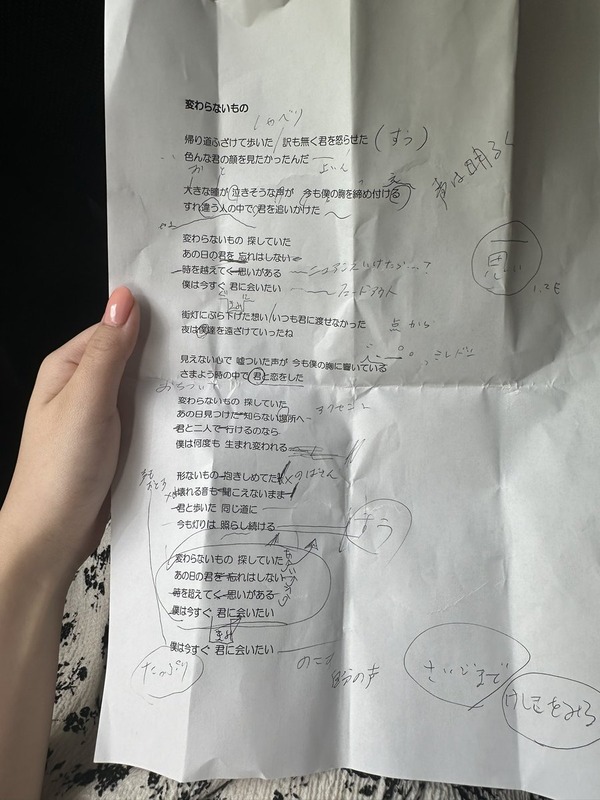 変わらないもの
しゃべり
帰り道ふざけて歩いた / 訳も無く君を怒らせた (すう)
色んな君の顔を見たかったんだ
声は明るく
大きな瞳が 泣きそうな声が 今も僕の胸を締め付ける
すれ違う人の中で 君を追いかけた
変わらないもの 探していた
あの日の君を 忘れはしない
時を越えてく 思いがある
思い
僕は今すぐ 君に会いたい フェードアウト
街灯にぶら下げた想い / いつも君に渡せなかった 点から
夜は僕達を遠ざけていったね
見えない心で 嘘ついた声が 今も僕の胸に響いている
さまよう時の中で 君と恋をした
変わらないもの 探していた
あの日見つけた 知らない場所へ アクセント
君と二人で 行けるのなら
僕は何度も 生まれ変われる
形ないもの 抱きしめてた のばせん
壊れる音も 聞こえないまま
君と歩いた 同じ道に
今も灯りは 照らし続ける
すう
変わらないもの 探していた
あの日の君を 忘れはしない
時を超えてく 思いがある
僕は今すぐ 君に会いたい
僕は今すぐ 君に会いたい
たっぷり
自分の声
さいごまで
けしきをみる